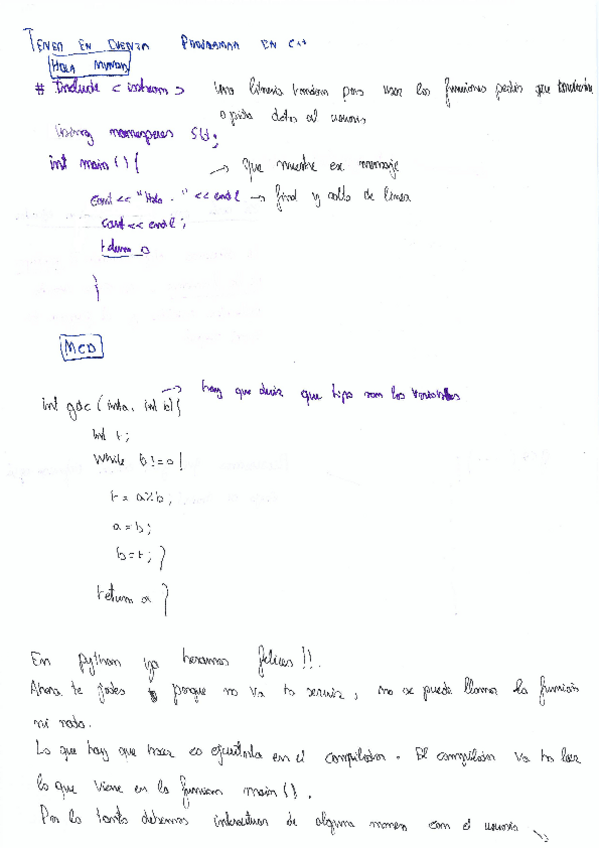 TENER EN CUENTA PROGRAMAR EN C++
HOLA MUNDO
# Include <iostream> Una librería tendrán para usar las funciones pedir que
o pida datos al usuario
Using namespaces Std;
int main () { → Que muestre ese mensaje
cout << "Hola . " << endl → final y salto de línea
cout << endl;
return 0
}
MCD
→ hay que decir que tipo son las variables
int gdc (int a, int b) {
int t;
while b != 0 {
t = a%b;
a = b;
b = t; }
return a }
En python ya heramos felices!!.
Ahora te jodes porque no va ha servir, no se puede llamar la función
ni nada.
Lo que hay que hacer es ejecutarla en el compilador. El compilador va ha leer
lo que viene en la funcion main().
Por lo tanto debemos interactuar de alguna manera con el usuario